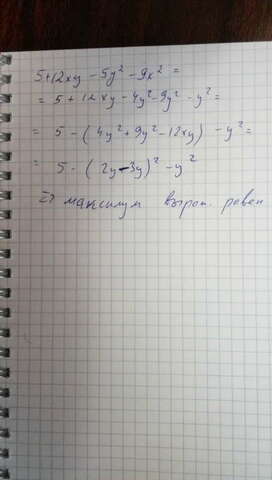 5+12xy - 5y² - 9x² =
= 5 + 12xy - 4y² - 9y² - y² =
= 5 - ( 4y² + 9y² - 12xy) - y² =
= 5 - ( 2y - 3y)² - y²
=> максимум выраж. равен